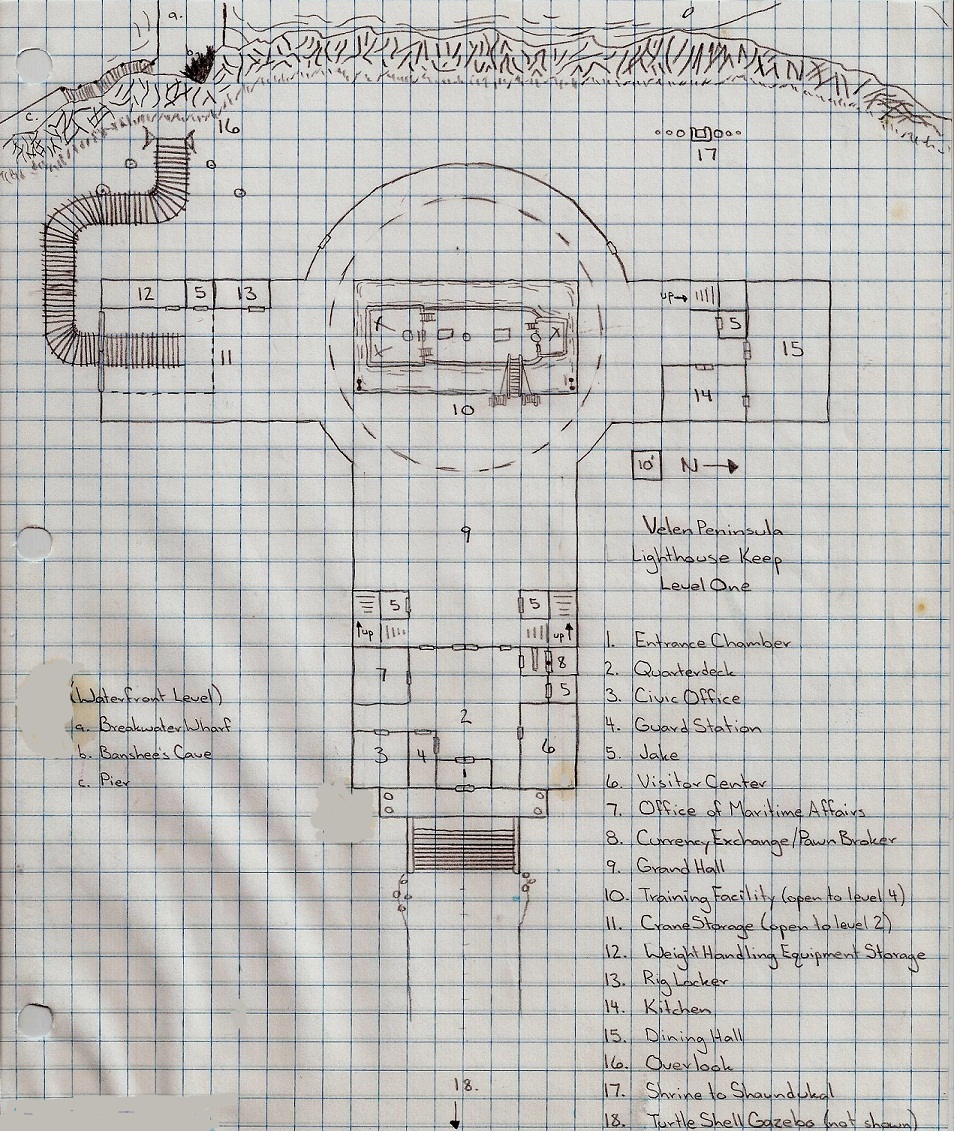 a.
b.
c.
16
17
12
5
13
up→
5
15
11
14
10
10'
N→
Velen Peninsula
Lighthouse Keep
Level One
9
5
5
↑up
up↑
7
8
5
2
3
4
1
6
(Waterfront Level)
a. Breakwater Wharf
b. Banshee's Cave
c. Pier
1. Entrance Chamber
2. Quarterdeck
3. Civic Office
4. Guard Station
5. Jake
6. Visitor Center
7. Office of Maritime Affairs
8. Currency Exchange/Pawn Broker
9. Grand Hall
10. Training Facility (open to level 4)
11. Crane Storage (open to level 2)
12. Weight Handling Equipment Storage
13. Rig Locker
14. Kitchen
15. Dining Hall
16. Overlook
17. Shrine to Shaundukal
18. Turtle Shell Gazebo (not shown)
18.